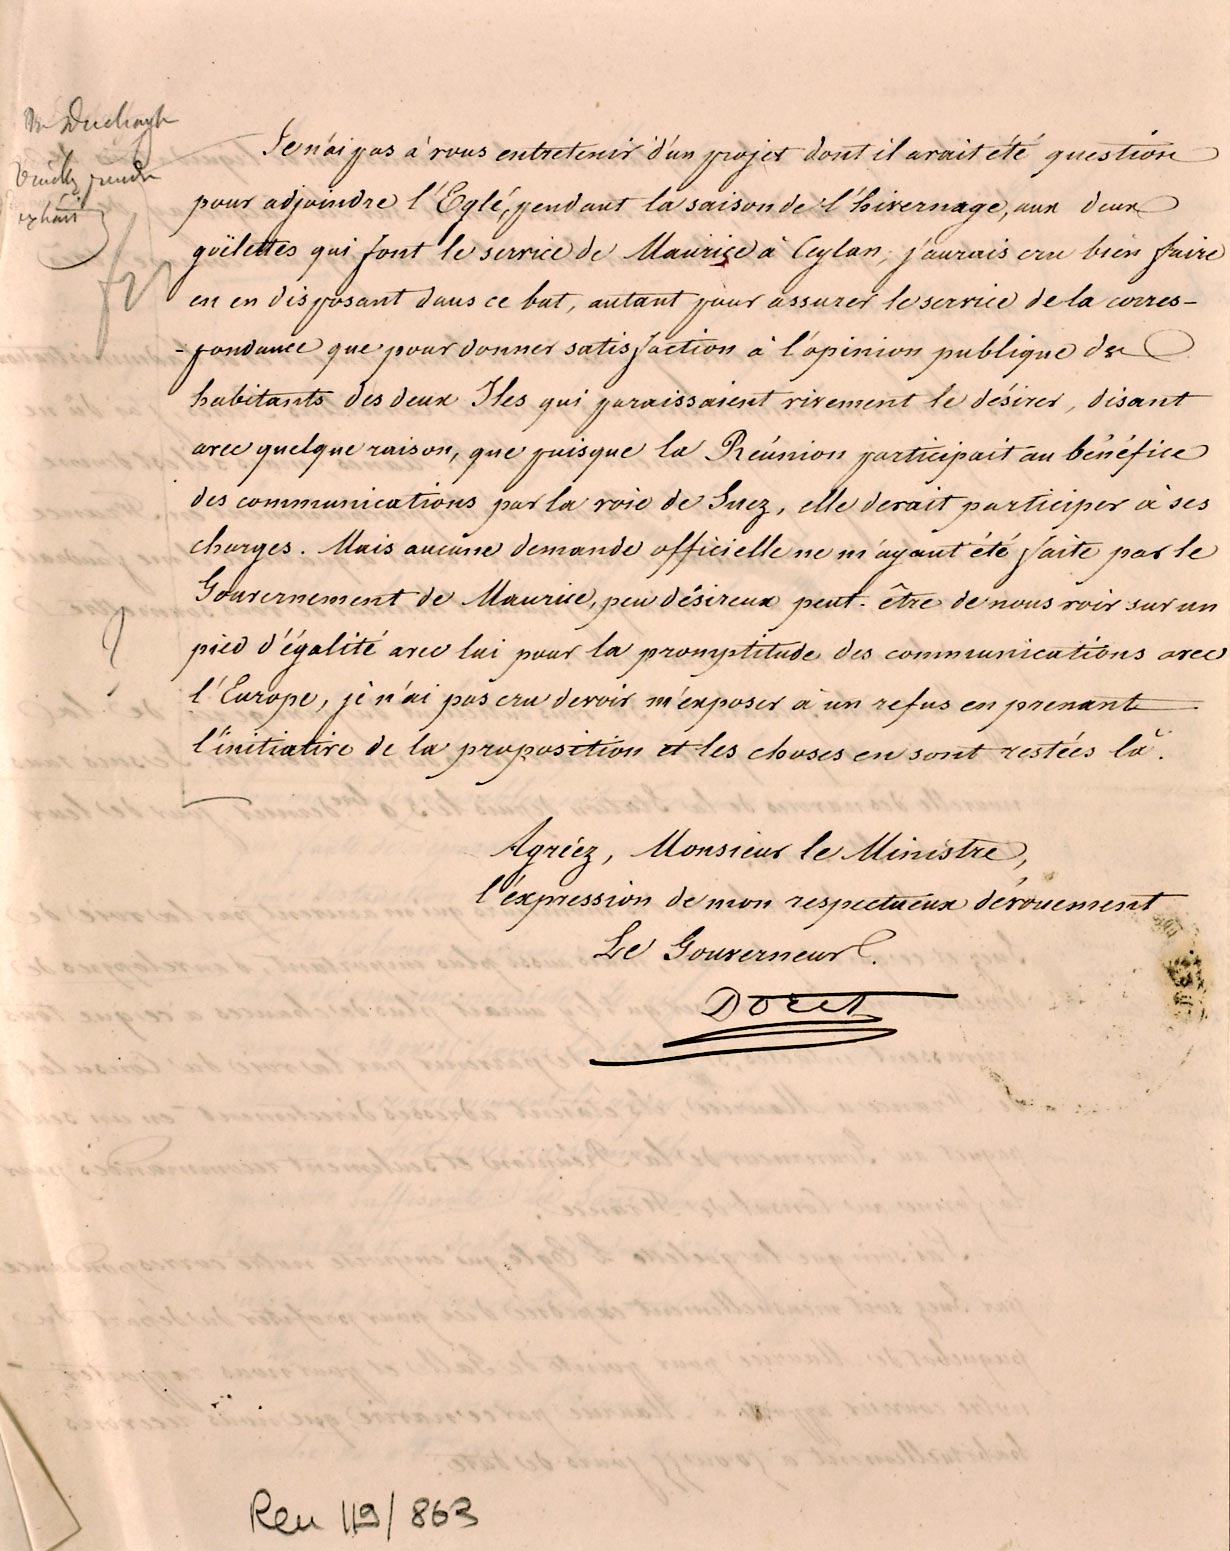 Mr Duchayl
Veuillez prendre
extrait
Je n'ai pas à vous entretenir d'un projet dont il avait été question
pour adjoindre l'Eglé, pendant la saison de l'hivernage, aux deux
goëlettes qui font le service de Maurice à Ceylan; j'aurais cru bien faire
en en disposant dans ce but, autant pour assurer le service de la corres-
-pondance que pour donner satisfaction à l'opinion publique des
habitants des deux Iles qui paraissaient vivement le désirer, disant
avec quelque raison, que puisque la Réunion participait au bénéfice
des communications par la voie de Suez, elle devait participer à ses
charges. Mais aucune demande officielle ne m'ayant été faite par le
Gouvernement de Maurice, peu désireux peut-être de nous voir sur un
pied d'égalité avec lui pour la promptitude des communications avec
l'Europe, je n'ai pas cru devoir m'exposer à un refus en prenant
l'initiative de la proposition et les choses en sont restées là.
Agréez, Monsieur le Ministre,
l'expression de mon respectueux dévouement
Le Gouverneur.
Doret
Reu 119/863